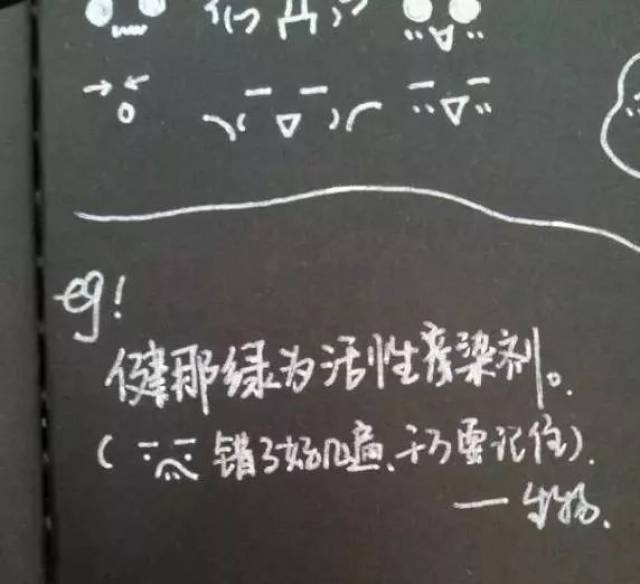 eg!
健那绿为活性废染剂。
(错了好几遍、千万要记住).
——生物.